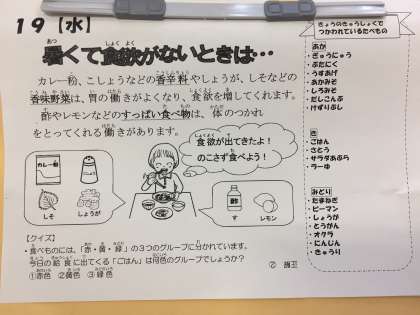 19【水】
暑くて食欲がないときは…
カレー粉、こしょうなどの香辛料やしょうが、しそなどの
香味野菜は、胃の働きがよくなり、食欲を増してくれます。
酢やレモンなどのすっぱい食べ物は、体のつかれ
をとってくれる働きがあります。
カレー粉
しそ
しょうが
食欲が出てきたよ!
のこさず食べよう!
す
レモン
【クイズ】
・食べものには、「赤・黄・緑」の3つのグループに分かれています。
今日の給食に出てくる「ごはん」は何色のグループでしょうか?
①赤色 ②黄色 ③緑色
きょうのきゅうしょくで
つかわれているたべもの
あか
・ぎゅうにゅう
・ぶたにく
・うすあげ
・あかみそ
・しろみそ
・だしこんぶ
・けずりぶし
き
・ごはん
・さとう
・サラダあぶら
・ラーゆ
みどり
・たまねぎ
・ピーマン
・しょうが
・とうがん
・オクラ
・にんじん
・きゅうり